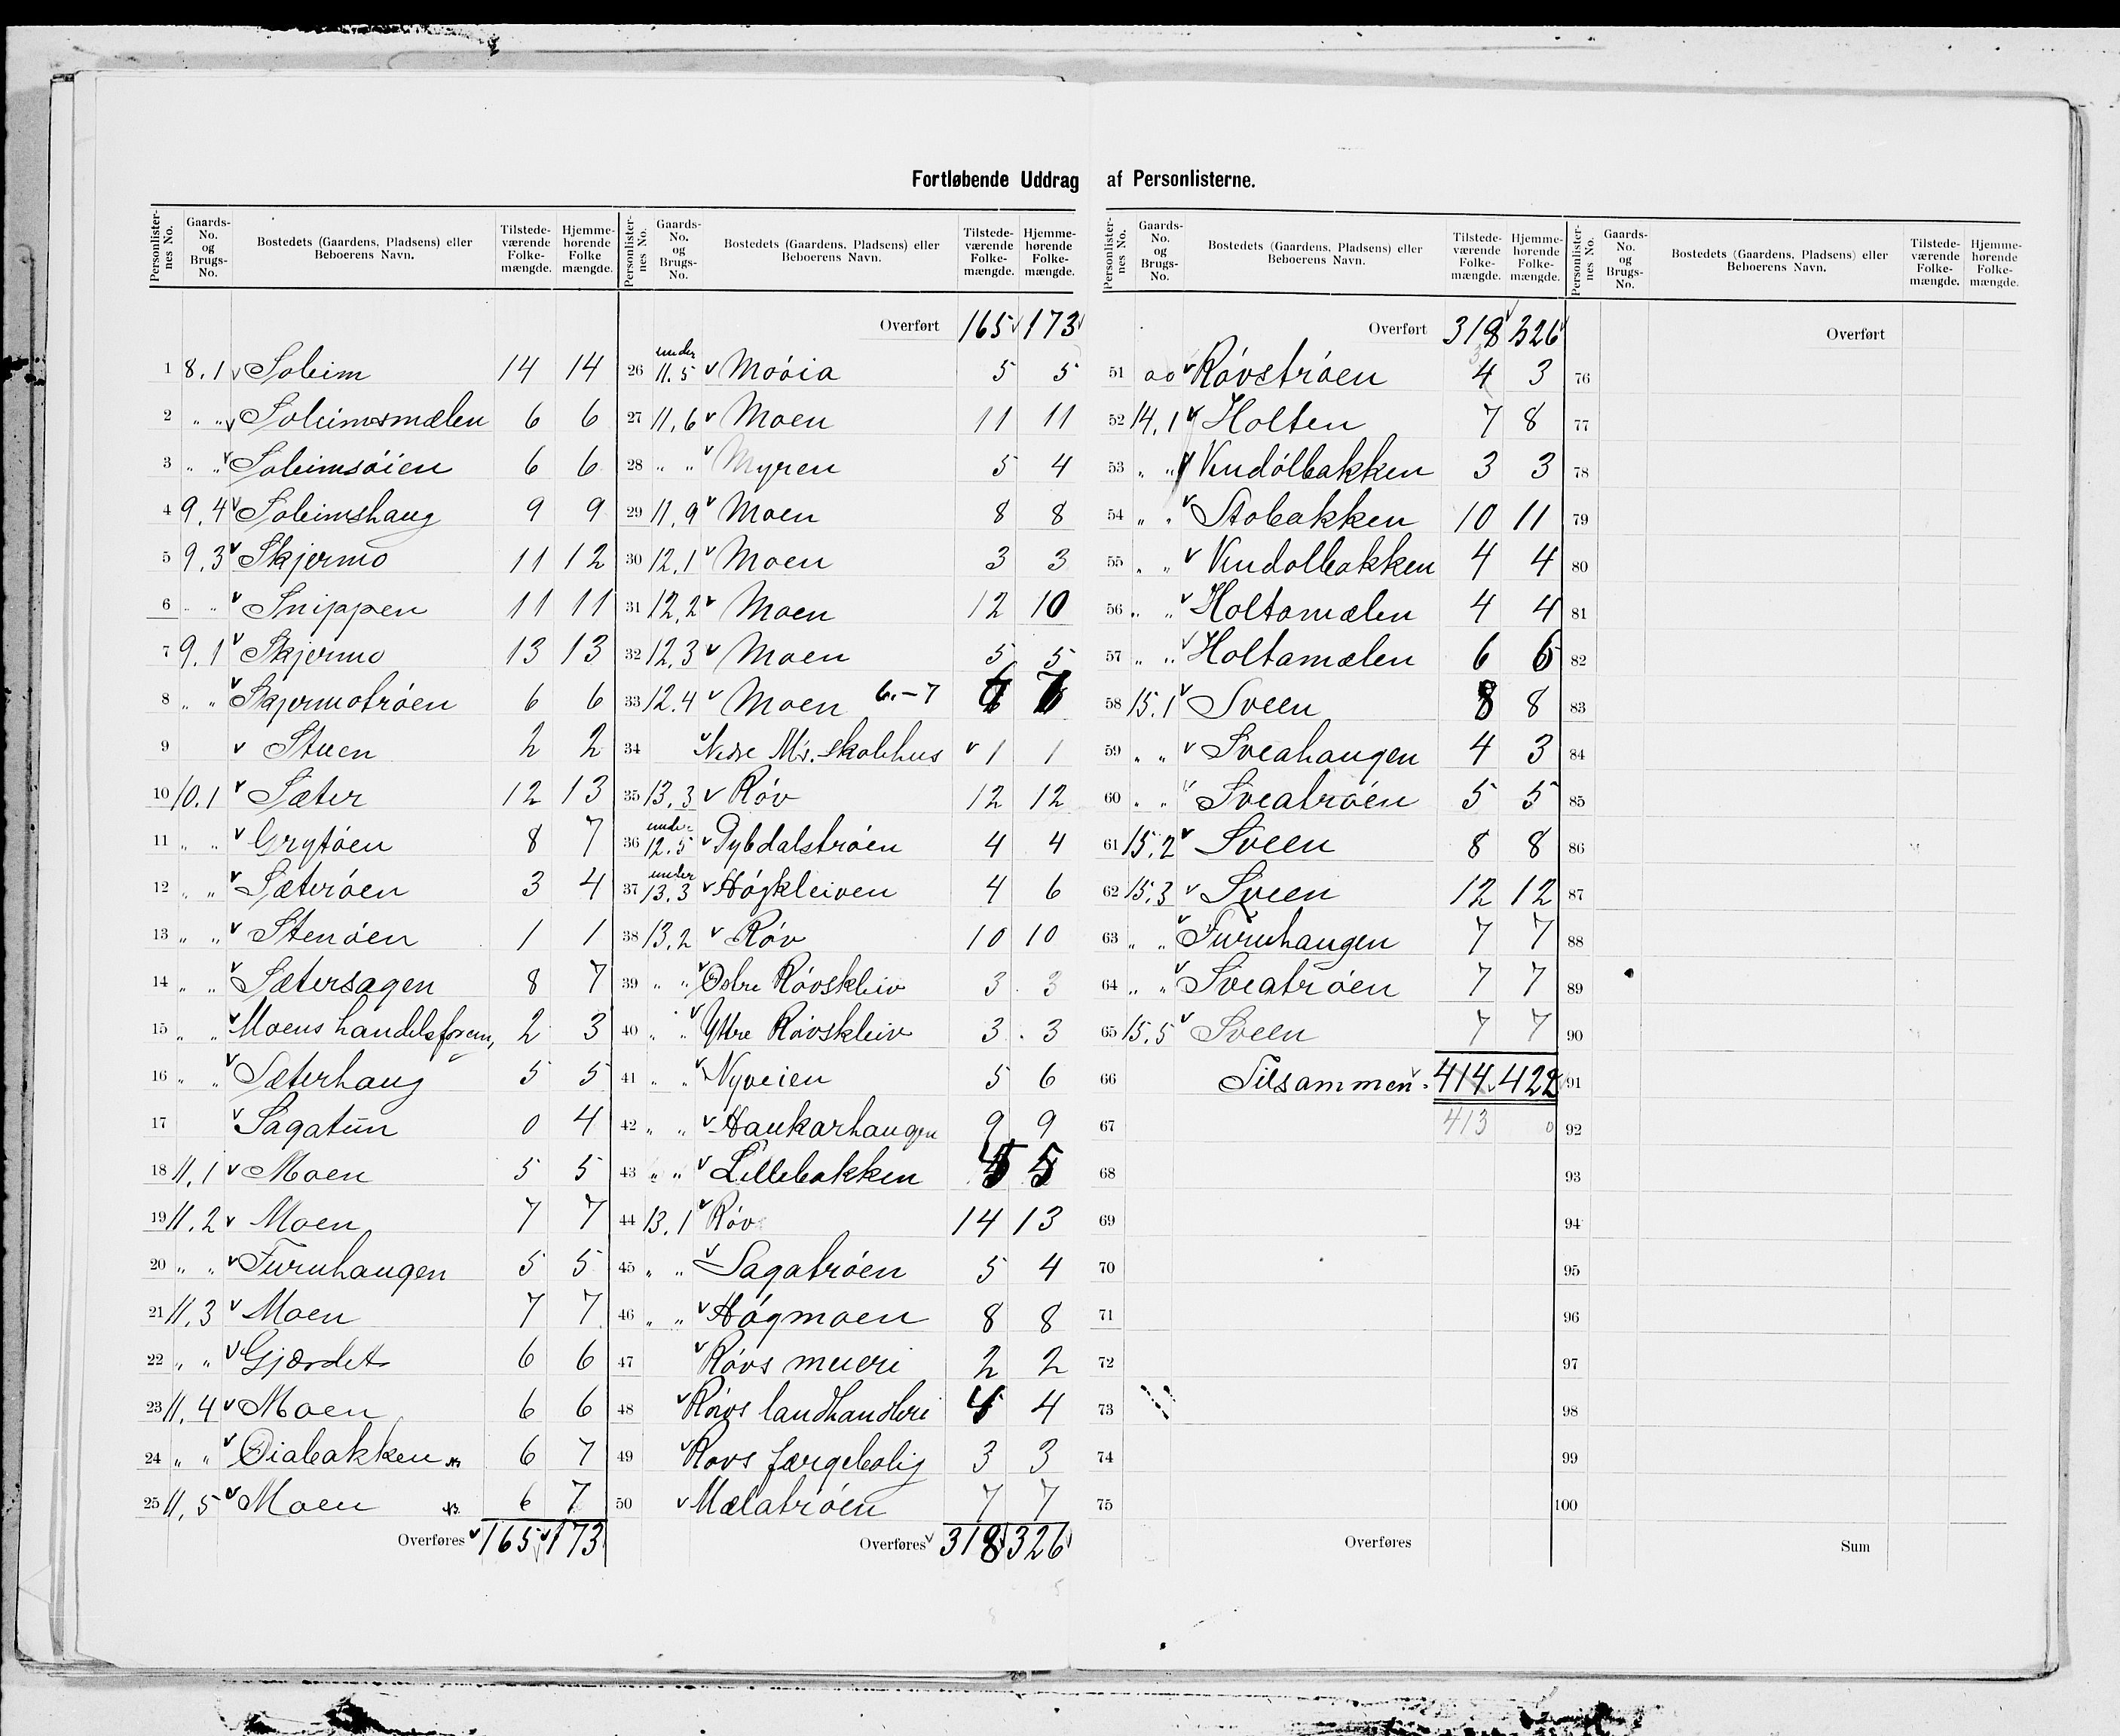 Fortløbende Uddrag af Personlisterne.
Personlister-nes No. Gaards-No. og Brugs-No. Bostedets (Gaardens, Pladsens) eller Beboerens Navn. Tilstede-værende Folke-mængde. Hjemme-hørende Folke mængde.
1 8.1 v Soleim 14 14
2 „ „ v Soleimsmælen 6 6
3 „ „ v Soleimsøien 6 6
4 9.4 v Soleimshaug 9 9
5 9.3 v Skjermo 11 12
6 „ „ v Snippen 11 11
7 9.1 v Skjermo 13 13
8 „ „ v Skjermotrøen 6 6
9 v Stuen 2 2
10 10.1 v Sæter 12 13
11 „ „ v Grytøen 8 7
12 „ „ v Sæterøen 3 4
13 „ „ v Stenøen 1 1
14 „ „ v Sætersagen 8 7
15 „ „ v Moens handelsforen, 2 3
16 „ „ v Sæterhaug 5 5
17 v Sagatun 0 4
18 11.1 v Moen 5 5
19 11.2 v Moen 7 7
20 „ „ v Furuhaugen 5 5
21 11.3 v Moen 7 7
22 „ „ v Gjærdet 6 6
23 11.4 v Moen 6 6
24 „ „ v Øiabakken 6 7
25 11.5 v Moen 6 7
Overføres v 165 v 173
Personlister-nes No. Gaards-No. og Brugs-No. Bostedets (Gaardens, Pladsens) eller Beboerens Navn. Tilstede-værende Folke-mængde. Hjemme-hørende Folke-mængde.
Overført 165 v 173 v
26 under 11.5 v Moøia 5 5
27 11.6 v Moen 11 11
28 „ „ v Myren 5 4
29 11.9 v Moen 8 8
30 12.1 v Moen 3 3
31 12.2 v Moen 12 10
32 12.3 v Moen 5 5
33 12.4 v Moen 6.-7 6 7
34 v Nedre M's. Skolehus v 1 1
35 13.3 v Røv 12 12
36 under 12.5 v Dybdalstrøen 4 4
37 under 13.3 v Høgkleiven 4 6
38 13.2 v Røv 10 10
39 „ „ v Østre Røvskleiv 3 3
40 „ „ v Yttre Røvskleiv 3 3
41 „ „ v Nyveien 5 6
42 „ „ v Haukarhaugen 9 9
43 „ „ v Lillebakken 5 5
44 13.1 v Røv 14 13
45 „ „ v Sagatrøen 5 4
46 „ „ v Høgmoen 8 8
47 v Røvs meieri 2 2
48 v Røvs landhandleri 4 4
49 v Røvs færgebolig 3 3
50 v Mælatrøen 7 7
Overføres v 318 326
Personlister-nes No. Gaards-No. og Brugs-No. Bostedets (Gaardens, Pladsens) eller Beboerens Navn. Tilstede-værende Folke-mængde. Hjemme-hørende Folke-mængde.
Overført 318 v 326 v
51 oo v Røvstrøen 4 3
52 14.1 v Holten 7 8
53 „ „ v Vindølbakken 3 3
54 „ „ v Stobakken 10 11
55 „ „ v Vindølbakken 4 4
56 „ „ v Holtamælen 4 4
57 „ „ v Holtamælen 6 6
58 15.1 v Sveen 8 8
59 „ „ v Sveahaugen 4 3
60 „ „ v Sveatrøen 5 5
61 15.2 v Sveen 8 8
62 15.3 v Sveen 12 12
63 „ „ v Furuhaugen 7 7
64 „ „ v Sveatrøen 7 7
65 15.5 v Sveen 7 7
66 Tilsammen v 414 422
67 413
68
69
70
71
72
73
74
75
Overføres
Personlister-nes No. Gaards-No. og Brugs-No. Bostedets (Gaardens, Pladsens) eller Beboerens Navn. Tilstede-værende Folke-mængde. Hjemme-hørende Folke-mængde.
Overført
76
77
78
79
80
81
82
83
84
85
86
87
88
89
90
91
92
93
94
95
96
97
98
99
100
Sum